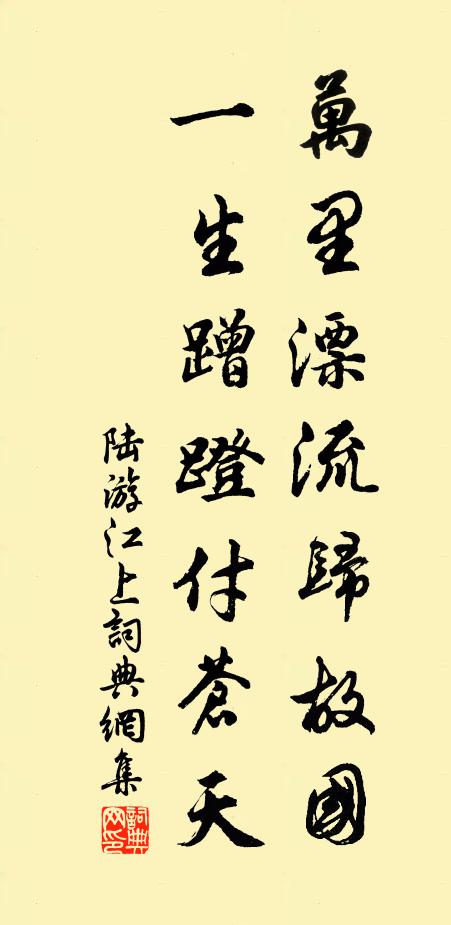 萬里漂流歸故國
一生蹭蹬付蒼天
陆游江上詞典網集
詞典網印